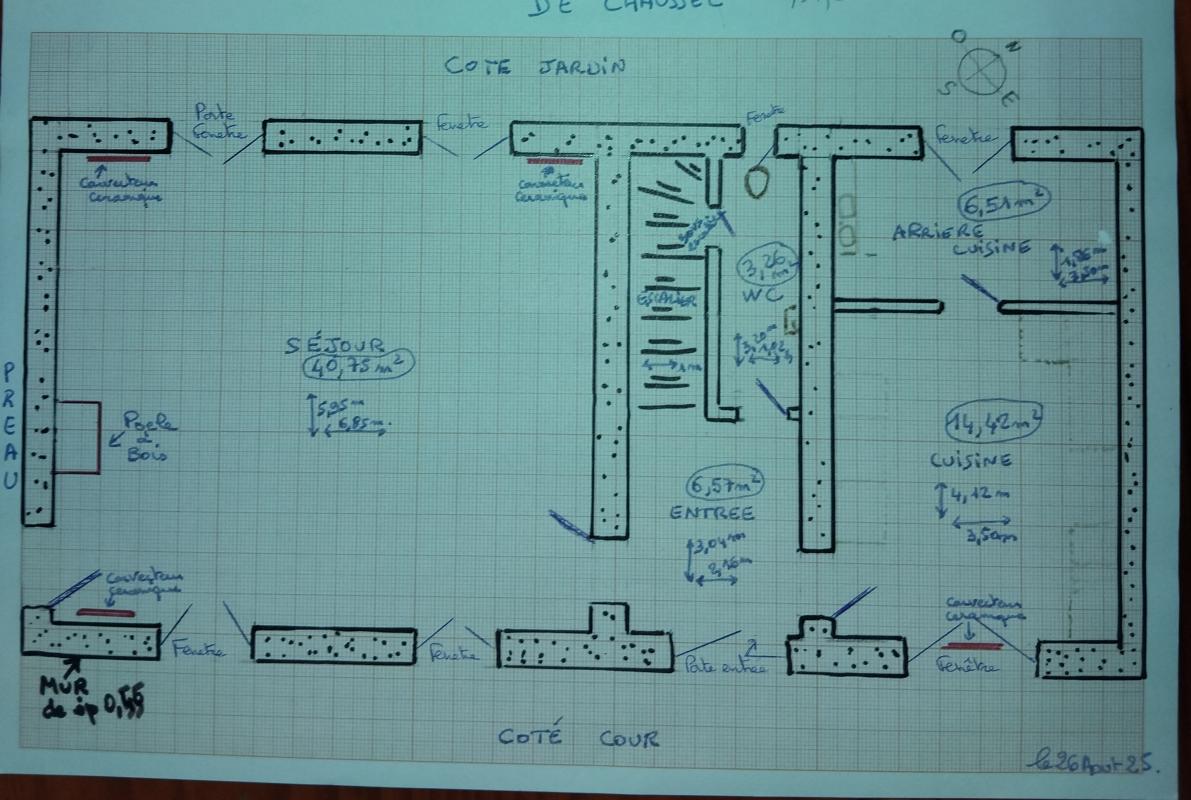 DE CHAUSSEE
COTE JARDIN
O
N
S
E
Porte
Fenetre
Fenetre
Fenetre
Fenetre
Convecteur
Ceramique
Convecteur
Ceramique
6,51 m²
ARRIERE
CUISINE
1,86m
3,50m
Sous
escalier
3,26 m²
WC
ESCALIER
1m
SÉJOUR
40,75 m²
5,95m
6,85m.
PREAU
Poele
à
Bois
14,42 m²
CUISINE
4,12m
3,50m
6,57m²
ENTREE
3,04m
2,16m
Convecteur
Ceramique
Convecteur
Ceramique
Fenetre
Fenetre
Porte entrée
Fenêtre
MUR
de ép 0,55
COTÉ COUR
le 26 Aout 25.